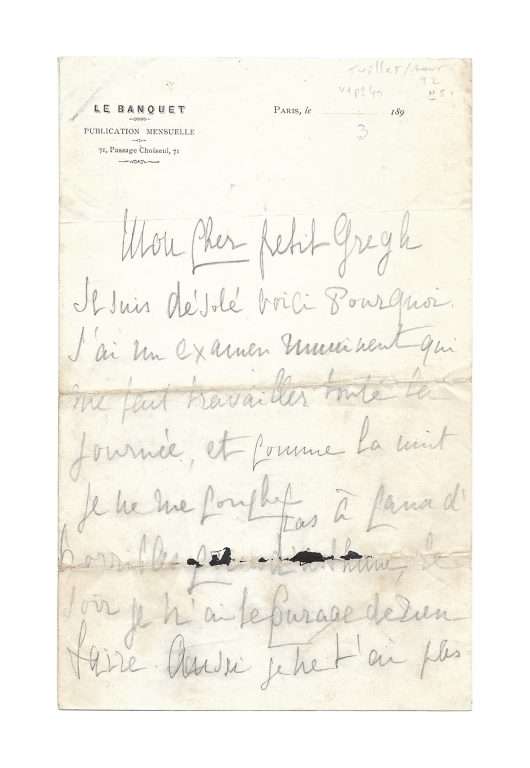 Juillet/Aout
92
n 5
3
LE BANQUET
PUBLICATION MENSUELLE
71, Passage Choiseul, 71
PARIS, le 189
Mon cher petit Gregh
Je suis désolé voici Pourquoi.
J'ai un examen imminent qui
me fait travailler toute la
journée, et comme la nuit
je ne me couche
pas à cause d'
horribles d'asthme, le
soir je n'ai le courage de rien
faire. Aussi je ne t'ai pas